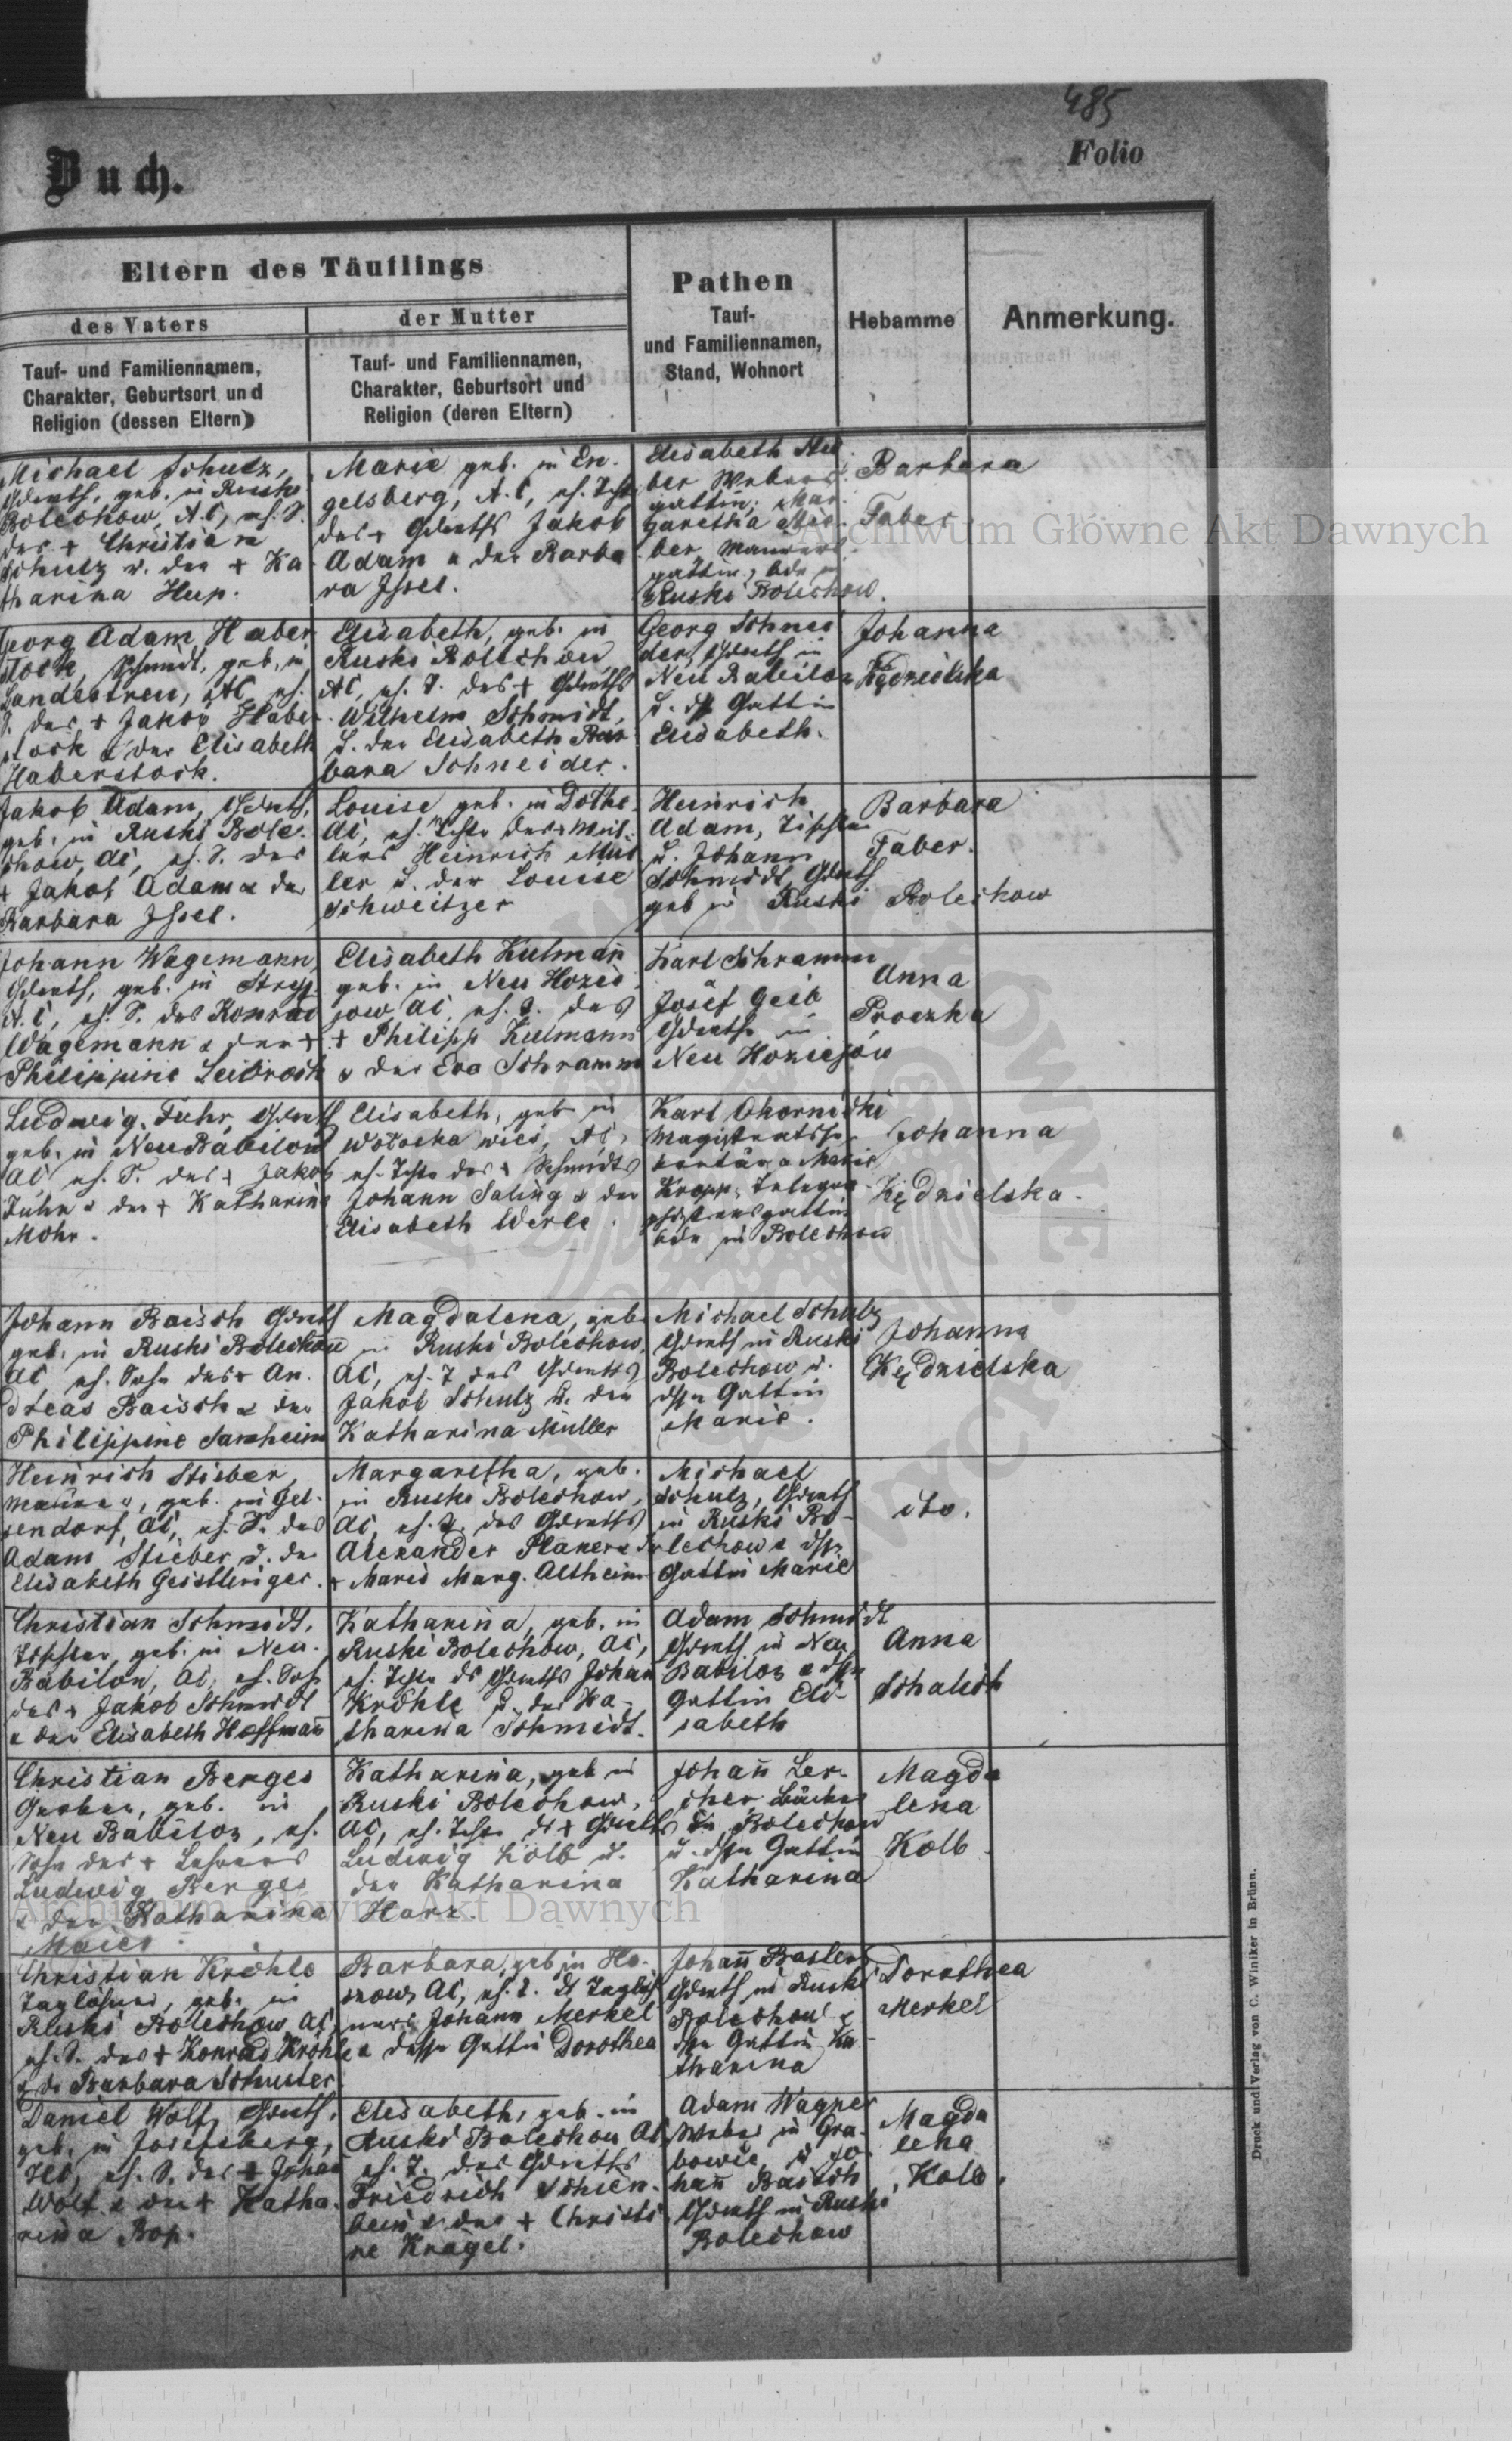 485
Folio
Buch.
Eltern des Täuflings
des Vaters
der Mutter
Tauf- und Familiennamen,
Charakter, Geburtsort und
Religion (dessen Eltern)
Tauf- und Familiennamen,
Charakter, Geburtsort und
Religion (deren Eltern)
Pathen
Tauf-
und Familiennamen,
Stand, Wohnort
Hebamme
Anmerkung.
Michael Schulz,
geb. in Ruski
Bolechow, A.C, eh. S.
des + Christian
Schulz u. der + Ka
tharina Hup.
Marie geb. in En-
gelsberg, A.C, eh. Toch
des + Jakob
Adam u der Barba
ra Issel.
Elisabeth
ber Webers
gattin, Mar
garetha
ber, Maurers
gattin, bde in
Ruski Bolechow.
Barbara
Faber
Georg Adam Haber
stock, Schmidt, geb. in
Landestreu, AC, eh.
S. des + Jakob Haber
stock u der Elisabeth
Haberstock.
Elisabeth, geb. in
Ruski Bolechow
AC, eh. T. des +
Wilhelm Schmidt,
u. der Elisabeth Bar
bara Schneider.
Georg Schnei
der, in
Neu Babilon
u. Gattin
Elisabeth.
Johanna
Kędzielska
Jakob Adam,
geb. in Ruski Bole-
chow, AC, eh. S. des
+ Jakob Adam u der
Barbara Issel.
Louise geb. in
AC, eh. Tochter des +
Heinrich Mül
ler u. der Louise
Schweitzer
Heinrich
Adam, Tischler
u. Johann
Schmidt,
geb in Ruski Bolechow
Barbara
Faber.
Johann Wagemann,
geb. in Stryj
A.C, eh. S. des Konrad
Wagemann u der +
Philippine Leibrock
Elisabeth Kulmañ
geb. in Neu Hozie
jow AC, eh. T. des
+ Philipp Kulmann
u der Eva Schramm
Karl Schramm
Josef Geib
in
Neu Hoziejów
Anna
Proczka
Ludwig Fuhr,
geb. in Neu Babilon
AC eh. S. des + Jakob
Fuhr u der + Katharina
Mohr.
Elisabeth, geb in
AC,
eh. Tochter des + Schmidts
Johann Saling u der
Elisabeth Werle.
Karl
Marie
Kropp,
gattin
bde in Bolechow
Johanna
Kędzielska.
Johann Baisch
geb. in Ruski Bolechow
AC eh. Sohn des + An
dreas Baisch u der
Philippine
Magdalena, geb
in Ruski Bolechow,
AC, eh. T des
Jakob Schulz u. der
Katharina Müller
Michael Schulz
in Ruski
Bolechow u.
Gattin
Marie.
Johanna
Kędzielska
Heinrich Stieber,
Maurer, geb. in Gel-
sendorf, AC, eh. S. des
Adam Stieber u. der
Elisabeth Geistlinger.
Margaretha, geb.
in Ruski Bolechow,
AC, eh. T. des
Alexander Planer u der
+ Marie Marg. Altheim
Michael
Schulz,
in Ruski Bo-
lechow u
Gattin Marie
ito.
Christian Schmidt,
Tischler, geb. in Neu-
Babilon, AC, eh. Sohn
des + Jakob Schmidt
u der Elisabeth Hoffmañ
Katharina, geb. in
Ruski Bolechow, AC,
eh. Tochter ds Johan
Kröhle u. der Ka-
tharina Schmidt.
Adam Schmidt
in Neu
Babilon u
Gattin Eli-
sabeth
Anna
Schalich
Christian Berges
Gerber, geb. in
Neu Babilon, eh.
Sohn des + Lehrers
Ludwig Berges
u der Katharina
Maier.
Katharina, geb in
Ruski Bolechow,
AC, eh. Tochter ds +
Ludwig Kolb u.
der Katharina
Harz.
Johañ Ler-
cher, Bäcker
in Bolechow
u. Gattin
Katharina
Magda
lena
Kolb
Christian Kröhle
Taglöhner, geb. in
Ruski Bolechow AC,
eh. S. des + Konrad Kröhle
u dr Barbara Schuster.
Barbara, geb in Ho-
AC, eh. T. ds Taglöh
ners Johann Merkel
u Gattin Dorothea
Johañ Basler
in Ruski
Bolechow u
Gattin Ka-
tharina
Dorothea
Merkel
Daniel Wolf,
geb. in Josefsberg,
eh. S. des + Johan
Wolf u der + Katha-
rina Bop.
Elisabeth, geb. in
Ruski Bolechow AC,
eh. T. des
Friedrich Schien-
bein u der + Christi
ne Kragel.
Adam Wagner
Weber in Gra-
bowie, u Jo-
hañ Baisch
in Ruski
Bolechow
Magda
lena
Kolb.
Druck und Verlag von C. Winiker in Brünn.
Archiwum Główne Akt Dawnych
Archiwum Główne Akt Dawnych